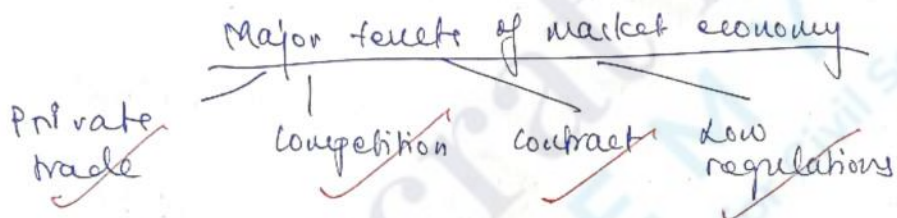 Major tenets of market economy
Private trade
Competition
Contract
Low regulations